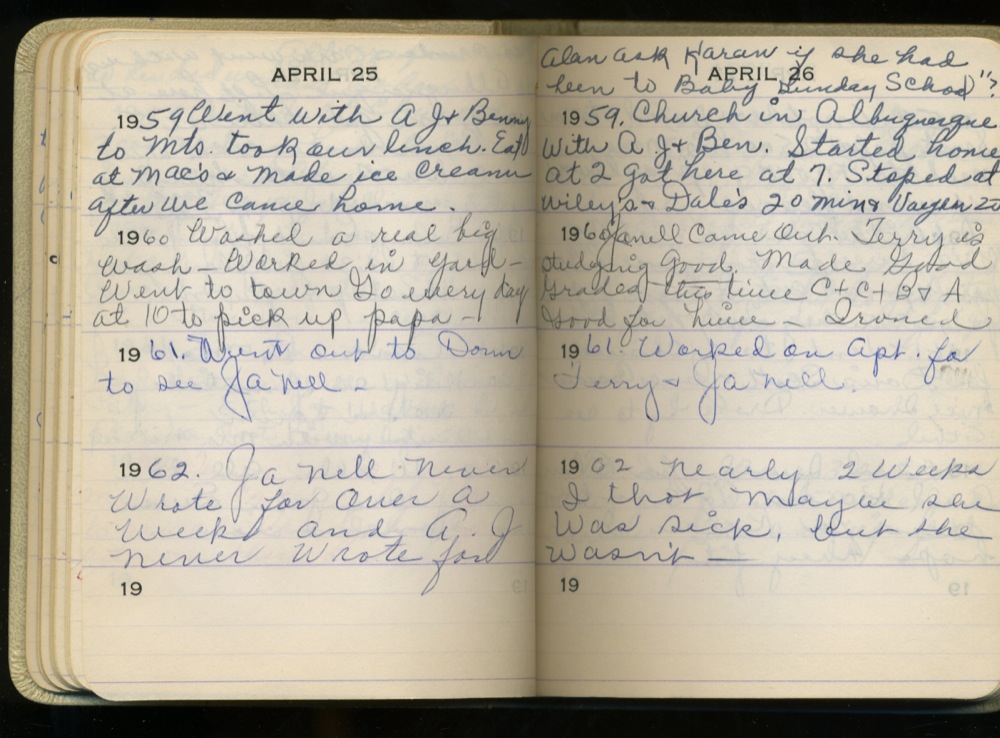 APRIL 25
1959 Went with A J & Benny
to Mts. took our lunch. Eat
at Mac's & Made ice cream
after we came home.
1960 Washed a real big
Wash - Worked in yard -
Went to town Go every day
at 10 to pick up papa -
1961. Went out to Dorm
to see Ja'nell -
1962. Ja'nell never
Wrote for over a
Week and A. J
never Wrote for
19
Alan ask Karan if she had
APRIL 26
been to Baby Sunday School"?
1959. Church in Albuquerque
With A J & Ben. Started home
at 2 got here at 7. Stoped at
Wiley's & Dale's 20 min &
1960 Janell Came Out. Terry is
studying good. Made Good
Grades this time C+ C+ B & A
Good for him - Ironed
1961. Worked on Apt. for
Terry & Ja'nell.
1962 nearly 2 Weeks
I thot maybe she
Was sick, but she
wasn't —
19